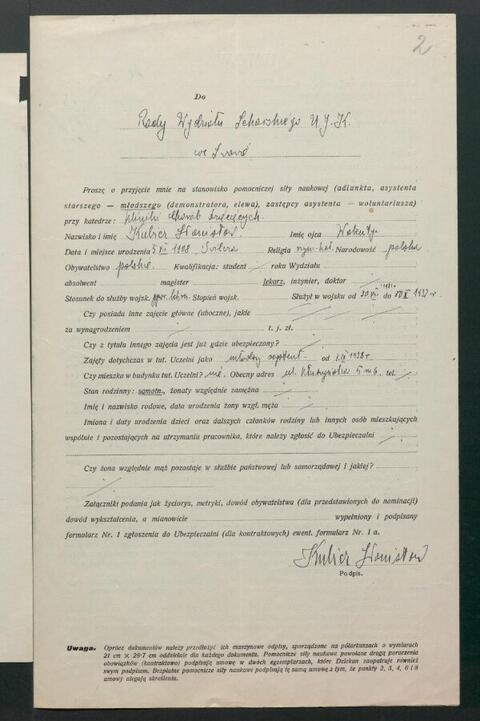 2
Do
Rady Wydziału Lekarskiego U. J. K.
we Lwowie
Proszę o przyjęcie mnie na stanowisko pomocniczej siły naukowej (adiunkta, asystenta
starszego — młodszego (demonstratora, elewa), zastępcy asystenta — woluntariusza)
przy katedrze: Kliniki Chorób
Nazwisko i imię Kubicz Stanisław Imię ojca
Data i miejsce urodzenia 5 VII 1908 Religia rzym. kat. Narodowość polska
Obywatelstwo polskie Kwalifikacja: student / roku Wydziału
absolwent magister lekarz, inżynier, doktor
Stosunek do służby wojsk. Stopień wojsk. Służył w wojsku od do
Czy posiada inne zajęcie główne (uboczne), jakie
za wynagrodzeniem t. j. zł.
Czy z tytułu innego zajęcia jest już gdzie ubezpieczony?
Zajęty dotychczas w tut. Uczelni jako młodszy asystent od 1 IX 1938 r
Czy mieszka w budynku tut. Uczelni? nie. Obecny adres ul. 5 m 6. tel.
Stan rodzinny: samotn., żonaty względnie zamężna
Imię i nazwisko rodowe, data urodzenia żony wzgl. męża
Imiona i daty urodzenia dzieci oraz dalszych członków rodziny lub innych osób mieszkających
wspólnie i pozostających na utrzymaniu pracownika, które należy zgłosić do Ubezpieczalni
Czy żona względnie mąż pozostaje w służbie państwowej lub samorządowej i jakiej?
Załączniki podania jak życiorys, metryki, dowód obywatelstwa (dla przedstawionych do nominacji)
dowód wykształcenia, a mianowicie wypełniony i podpisany
formularz Nr. 1 zgłoszenia do Ubezpieczalni (dla kontraktowych) ewent. formularz Nr. 1 a.
Kubicz Stanisław
Podpis.
Uwaga. Oprócz dokumentów należy przedłożyć ich maszynowe odpisy, sporządzone na półarkuszach o wymiarach
21 cm × 29·7 cm oddzielnie dla każdego dokumentu. Pomocnicze siły naukowe powołane drogą poruczenia
obowiązków (kontraktowo) podpisują umowę w dwóch egzemplarzach, które Dziekan zaopatruje również
swym podpisem. Bezpłatne pomocnicze siły naukowe podpisują tę samą umowę z tym, że punkty 2, 3, 4, 6 i 8
umowy ulegają skreśleniu.